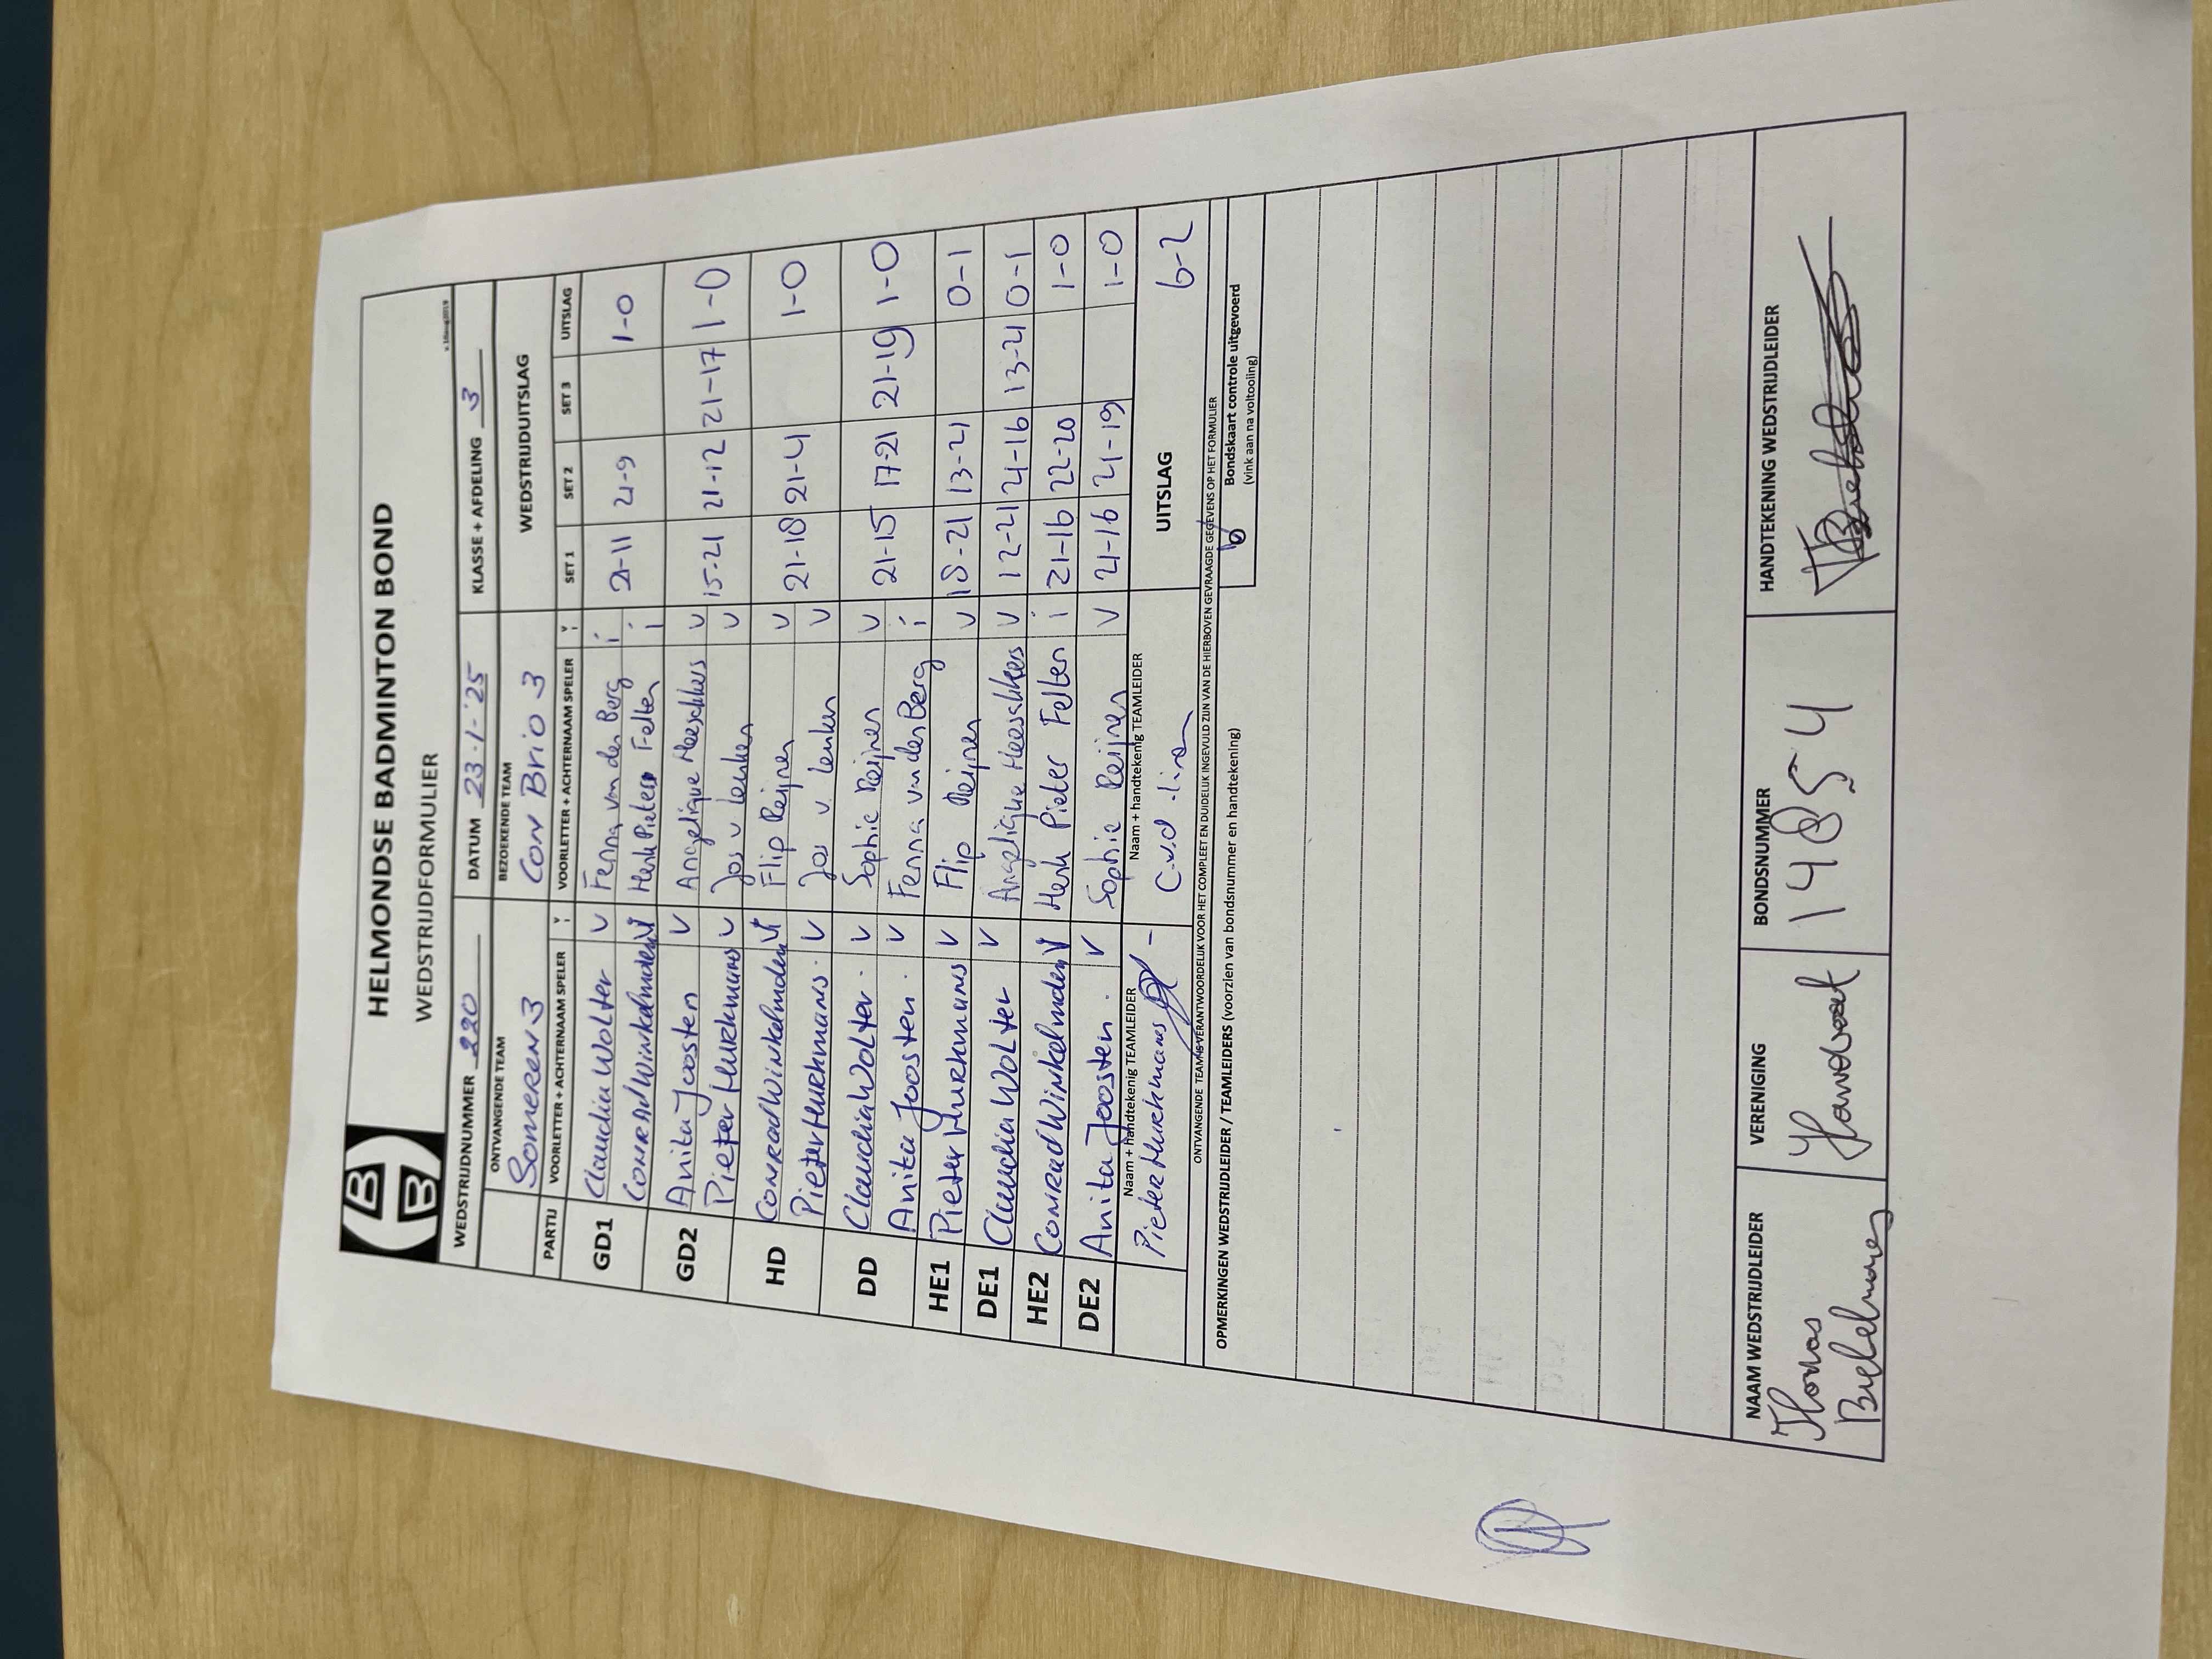 HELMONDSE BADMINTON BOND
WEDSTRIJDFORMULIER
WEDSTRIJDNUMMER 220 DATUM 23-1-'25 KLASSE + AFDELING 3
ONTVANGENDE TEAM BEZOEKENDE TEAM WEDSTRIJDUITSLAG
SOMEREN 3 CON BRIO 3
PARTIJ VOORLETTER + ACHTERNAAM SPELER VOORLETTER + ACHTERNAAM SPELER SET 1 SET 2 SET 3 UITSLAG
GD1 Claudia Wolter V Fenna van den Berg i 21-11 21-9 1-0
Conrad Winkelmolen V Henk Pieter Felten i
GD2 Anita Joosten V Angelique Heesakkers V 15-21 21-12 21-17 1-0
Pieter Hurkmans V Jos v leuken V
HD Conrad Winkelmolen V Flip Reijnen V 21-18 21-4 1-0
Pieter Hurkmans. V Jos v. leuken V
DD Claudia Wolter. V Sophie Reijnen V 21-15 17-21 21-19 1-0
Anita Joosten. V Fenna van den Berg i
HE1 Pieter Hurkmans V Flip Reijnen V 18-21 13-21 0-1
DE1 Claudia Wolter V Angelique Heesakkers V 12-21 21-16 13-21 0-1
HE2 Conrad Winkelmolen V Henk Pieter Felten i 21-16 22-20 1-0
DE2 Anita Joosten. V Sophie Reijnen V 21-16 21-19 1-0
Naam + handtekenig TEAMLEIDER Naam + handtekenig TEAMLEIDER UITSLAG 6-2
Pieter Hurkmans
ONTVANGENDE TEAM IS VERANTWOORDELIJK VOOR HET COMPLEET EN DUIDELIJK INGEVULD ZIJN VAN DE HIERBOVEN GEVRAAGDE GEGEVENS OP HET FORMULIER
OPMERKINGEN WEDSTRIJDLEIDER / TEAMLEIDERS (voorzien van bondsnummer en handtekening) Bondskaart controle uitgevoerd
(vink aan na voltooiing)
NAAM WEDSTRIJDLEIDER VERENIGING BONDSNUMMER HANDTEKENING WEDSTRIJDLEIDER
Thomas 14854